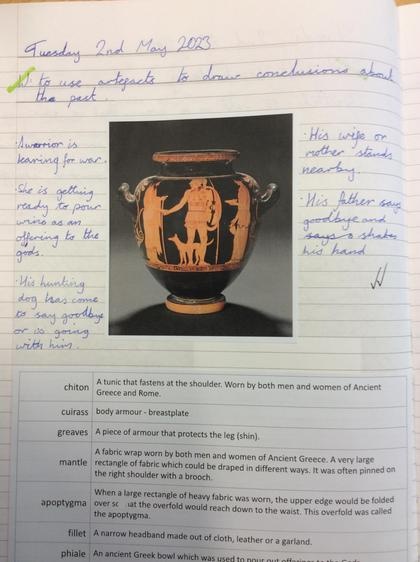 Tuesday 2nd May 2023
W: to use artefacts to draw conclusions about
the past.
· A warrior is
leaving for war.
· She is getting
ready to pour
wine as an
offering to the
gods.
· His hunting
dog has come
to say goodbye
or is going
with him.
· His wife or
mother stands
nearby.
· His father says
goodbye and
says shakes
his hand
chiton A tunic that fastens at the shoulder. Worn by both men and women of Ancient
Greece and Rome.
cuirass body armour - breastplate
greaves A piece of armour that protects the leg (shin).
mantle A fabric wrap worn by both men and women of Ancient Greece. A very large
rectangle of fabric which could be draped in different ways. It was often pinned on
the right shoulder with a brooch.
apoptygma When a large rectangle of heavy fabric was worn, the upper edge would be folded
over so at the overfold would reach down to the waist. This overfold was called
the apoptygma.
fillet A narrow headband made out of cloth, leather or a garland.
phiale An ancient Greek bowl which was used to pour out offerings to the Gods